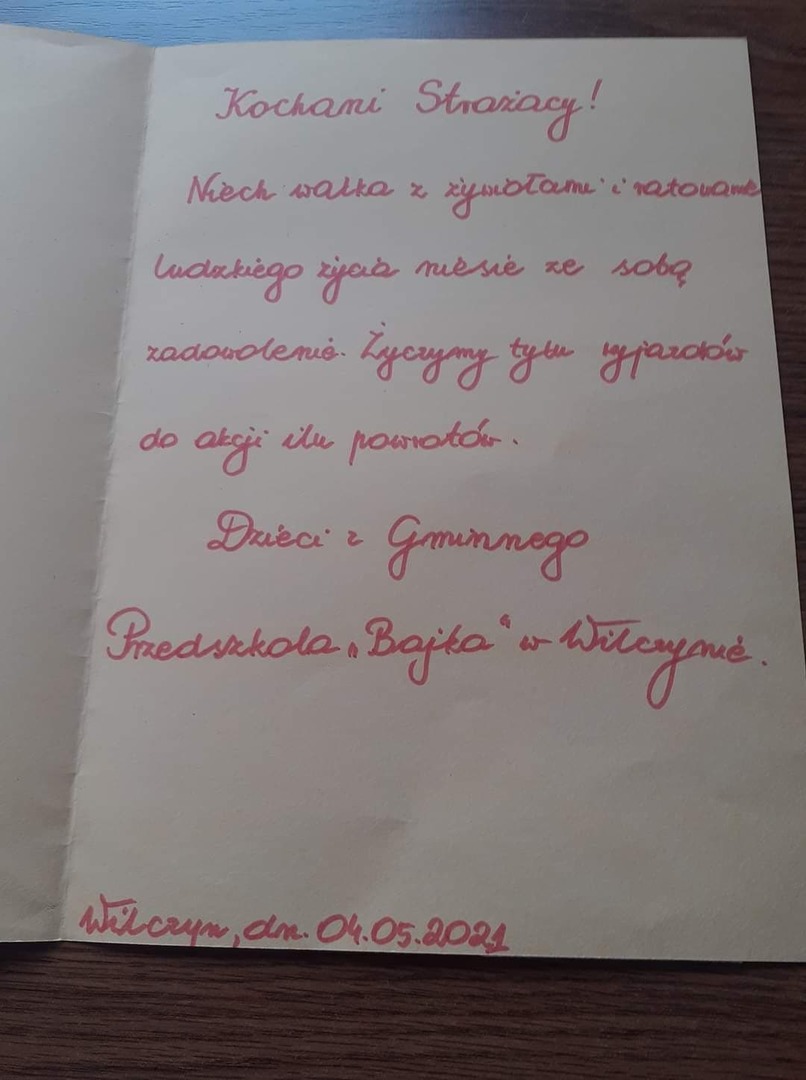 Kochani Strażacy!
Niech walka z żywiołami i ratowanie
ludzkiego życia niesie ze sobą
zadowolenie. Życzymy tylu wyjazdów
do akcji ilu powrotów.
Dzieci z Gminnego
Przedszkola „Bajka" w Wilczynie.
Wilczyn, dn. 04.05.2021